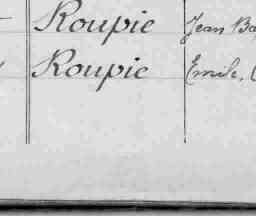 Roupie Jean Ba
Roupie Emile,